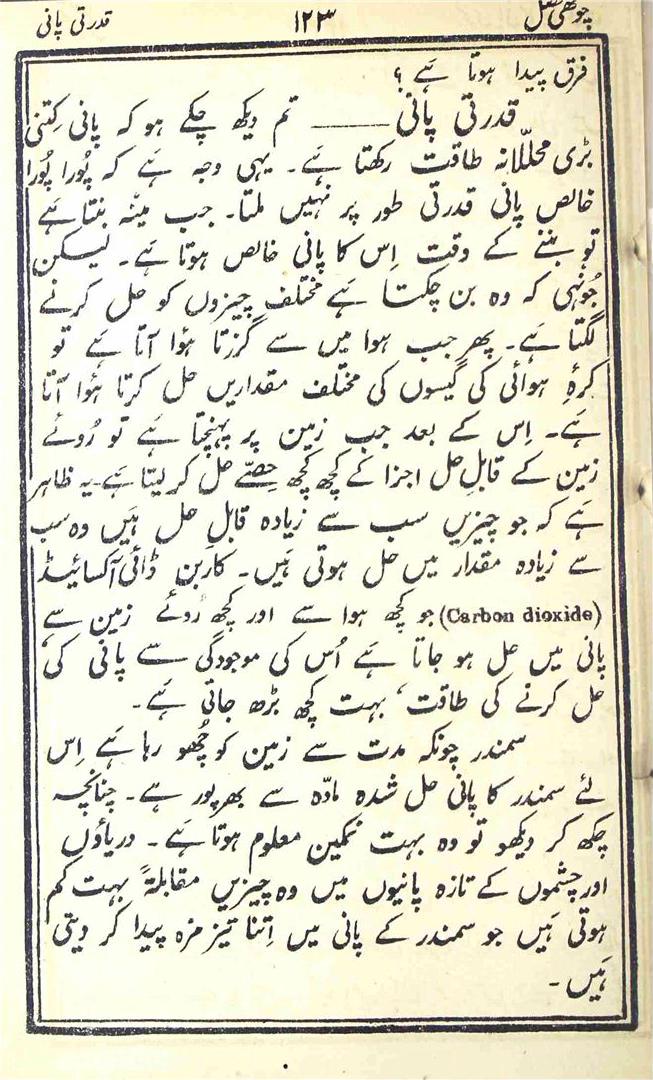 چوتھی فصل ۱۲۳ قدرتی پانی
فرق پیدا ہوتا ہَے ؟
قدرتی پانی ــــــ تم دیکھ چکے ہو کہ پانی کِتنی
بڑی محلّلانہ طاقت رکھتا ہَے۔ یہی وجہ ہَے کہ پُورا پُورا
خالص پانی قدرتی طور پر نہیں ملتا۔ جب مینہ بنتا ہَے
تو بننے کے وقت اِس کا پانی خالص ہوتا ہَے۔ لیکن
جُونہی کہ وہ بن چکتا ہَے مختلف چیزوں کو حل کرنے
لگتا ہَے۔ پھر جب ہوا میں سے گزرتا ہُوا آتا ہَے تو
کرۂ ہوائی کی گیسوں کی مختلف مقداریں حل کرتا ہُوا آتا
ہَے۔ اِس کے بعد جب زمین پر پہنچتا ہَے تو رُوئے
زمین کے قابلِ حل اجزا کے کچھ کچھ حِصّے حل کر لیتا ہَے۔ یہ ظاہر
ہَے کہ جو چیزیں سب سے زیادہ قابلِ حل ہَیں وہ سب
سے زیادہ مقدار میں حل ہوتی ہَیں۔ کاربن ڈائی آکسائیڈ
(Carbon dioxide) جو کچھ ہوا سے اور کچھ رُوئے زمین سے
پانی میں حل ہو جاتا ہَے اُس کی موجودگی سے پانی کی
حل کرنے کی طاقت، بہت کچھ بڑھ جاتی ہَے۔
سمندر چونکہ مدت سے زمین کو چھُو رہا ہَے اِس
لئے سمندر کا پانی حل شدہ مادّہ سے بھرپور ہَے۔ چنانچہ
چکھ کر دیکھو تو وہ بہت نمکین معلوم ہوتا ہَے۔ دریاؤں
اور چشموں کے تازہ پانیوں میں وہ چیزیں مقابلۃً بہت کم
ہوتی ہَیں جو سمندر کے پانی میں اِتنا تیز مزہ پیدا کر دیتی
ہَیں۔